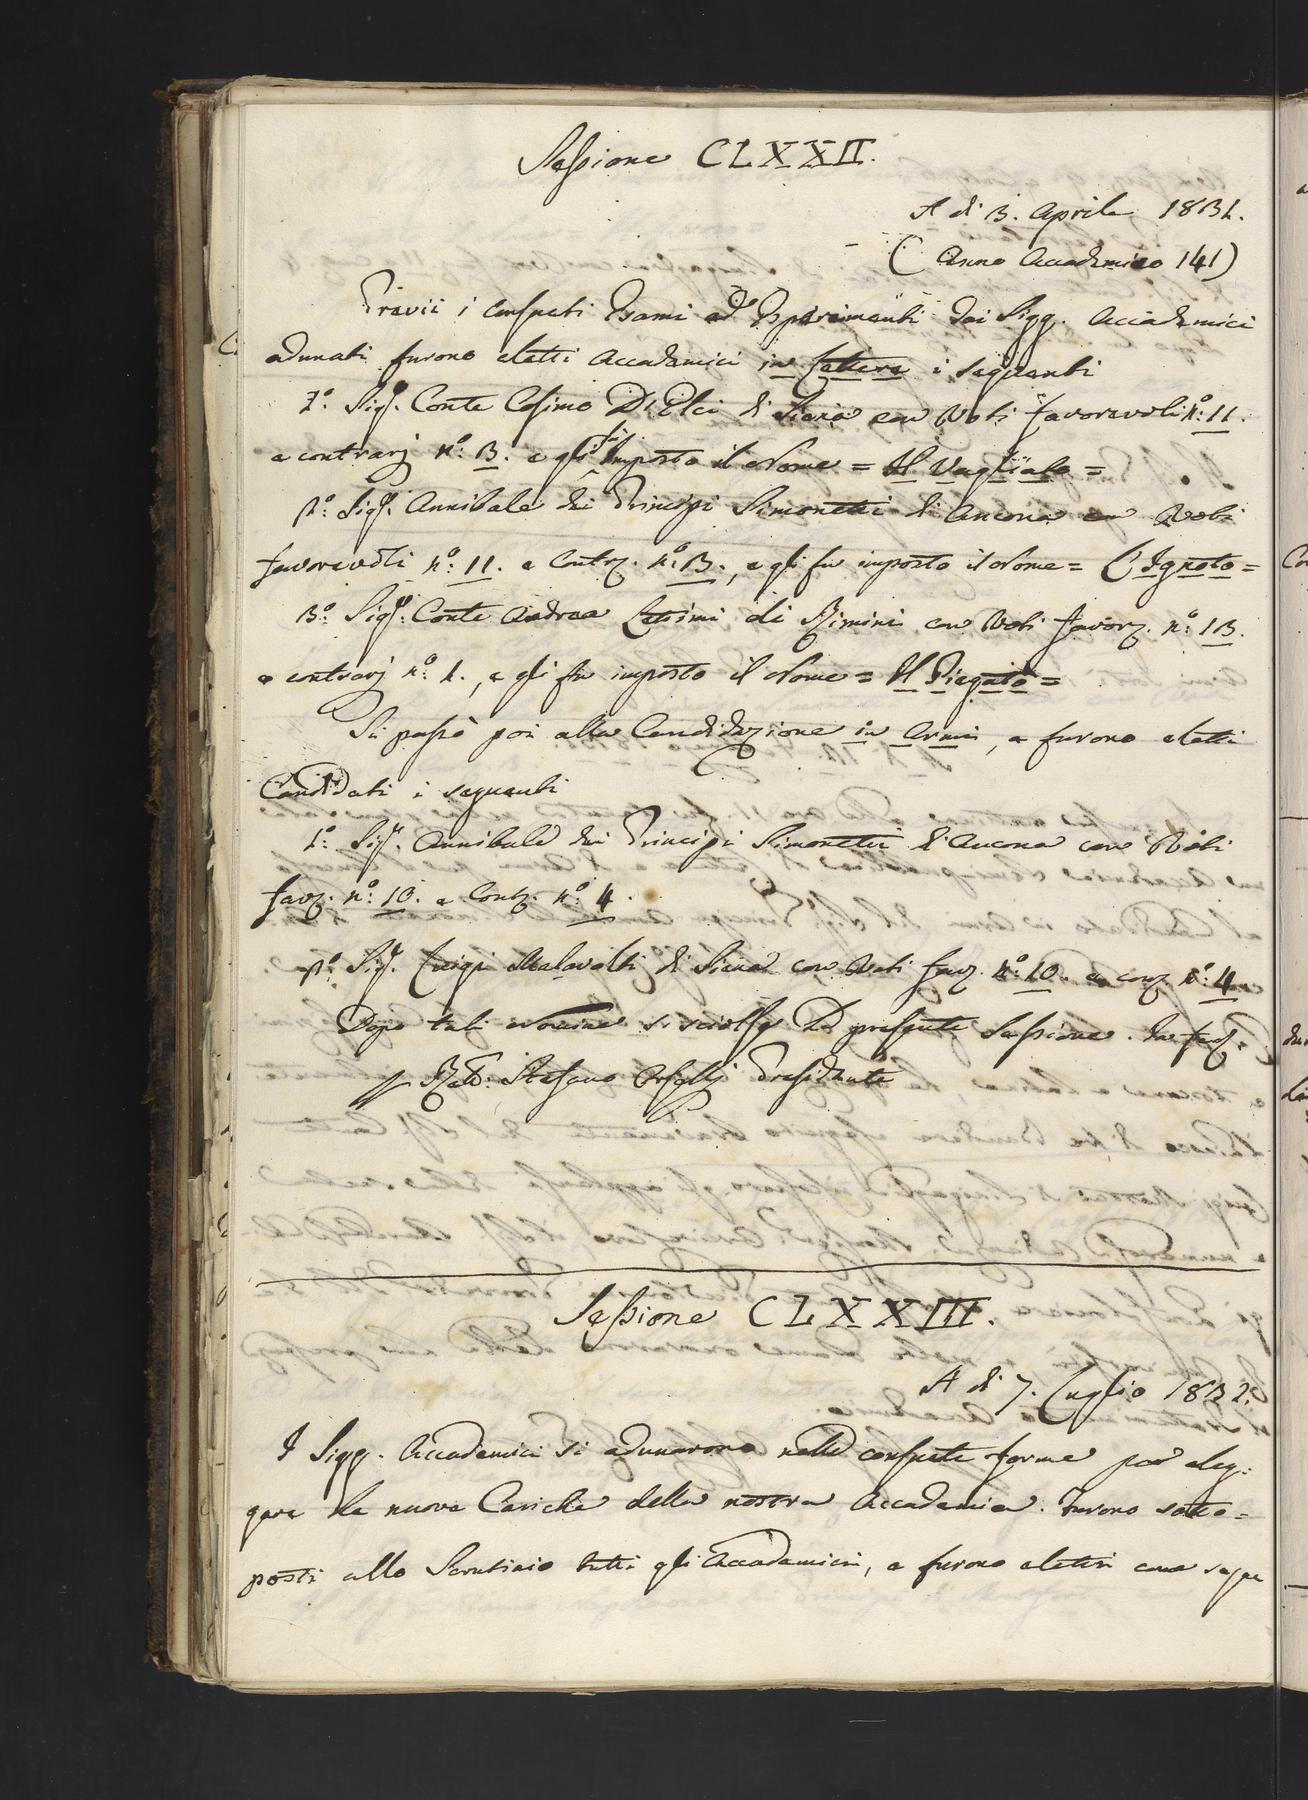 Sessione CLXXII.
A di 3. Aprile 1832.
( Anno Accademico 141)
Previi i consueti Esami ed Esperimenti dai Sigg. Accademici
adunati furono eletti Accademici in Lettere i seguenti
1.º Sigr. Conte Cosimo D'Elci di Siena con Voti favorevoli nº: 11.
e contrarj nº: 3. e gli fu imposto il Nome = Il Vagliato =
2.º Sigr. Annibale dei Principi Simonetti di Ancona con Voti
favorevoli nº: 11. e Contrj. nº: 3., e gli fu imposto il Nome = L'Ignoto =
3.º Sigr. Conte Andrea Lettimi di Rimini con Voti favorj. nº: 13.
e contrarj nº: 1., e gli fu imposto il Nome = Il Piegato =
Si passò poi alla Candidazione in Armi, e furono eletti
Candidati i seguenti
1.º Sigr. Annibale dei Principi Simonetti d'Ancona con Voti
favj. nº: 10. e Contrj. nº: 4.
2.º Sigr. Luigi Malavolti di Siena con Voti favj. nº: 10. e conj. nº: 4
Dopo tali Nomine si sciolse la presente Sessione. In fede
Stefano Presidente
Sessione CLXXIII.
A di 7. Luglio 1832.
I Sigg. Accademici si adunarono nelle consuete forme per eleg:
gere le nuove Cariche della nostra Accademia. Furono sotto=
posti allo Scrutinio tutti gli Accademici, e furono eletti come segue